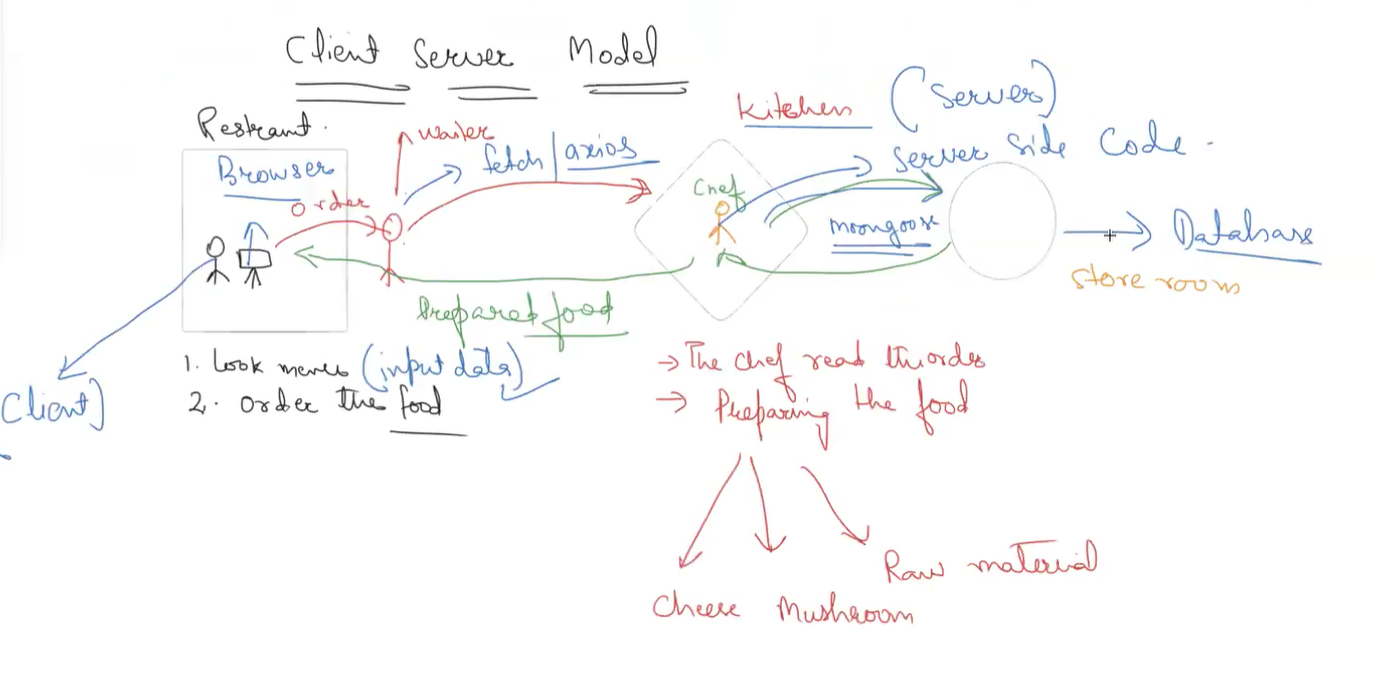 Client Server Model
Kitchen (Server)
Restraunt.
waiter
fetch/axios
Server side Code.
Browser
order
Chef
moongoose
Database
store room
Prepared food
1. Look menus (input data)
2. order the food
Client)
→ The chef read the order
→ Preparing the food
Raw material
Cheese Mushroom